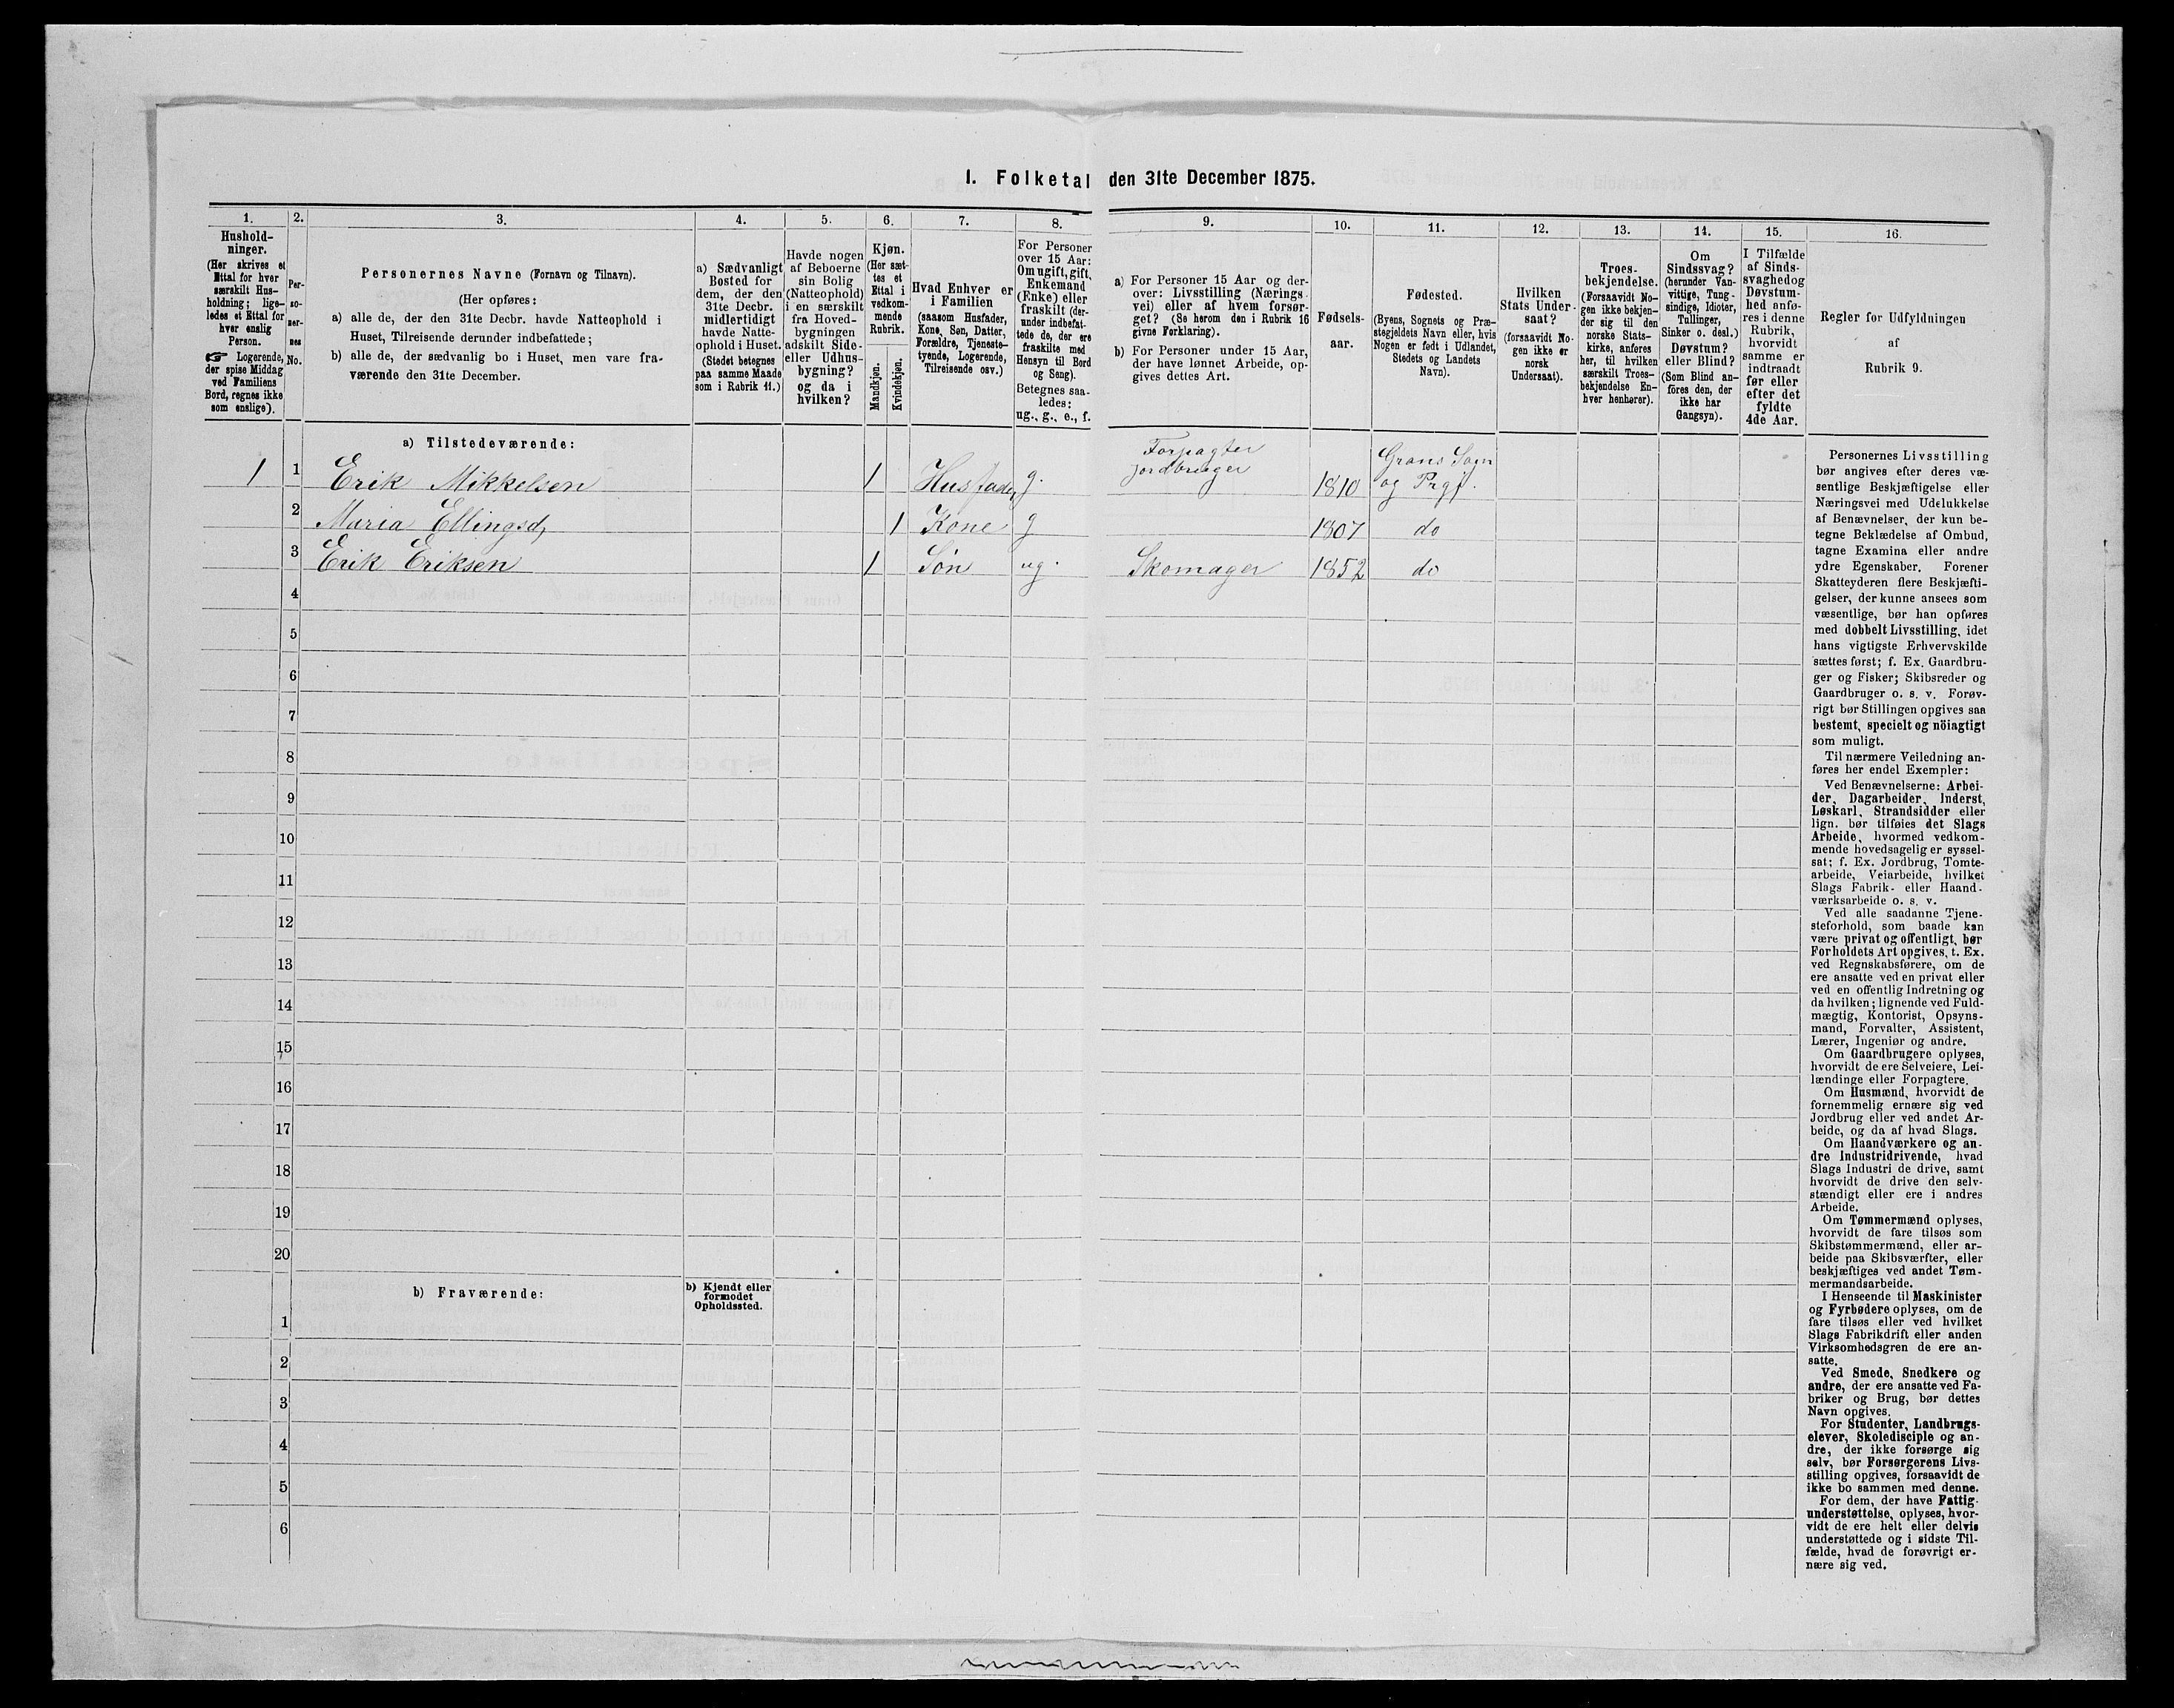 I. Folketal den 31te December 1875.
1.
2.
3.
4.
5.
6.
7.
8.
9.
10.
11.
12.
13.
14.
15.
16.
Hushold-
ninger.
(Her skrives et
Ettal for hver
særskilt Hus-
holdning; lige-
ledes et Ettal for
hver enslig
Person.
☞ Logerende,
der spise Middag
ved Familiens
Bord, regnes ikke
som enslige).
Per-
so-
ner-
nes
No.
Personernes Navne (Fornavn og Tilnavn).
(Her opføres:
a) alle de, der den 31te Decbr. havde Natteophold i
Huset, Tilreisende derunder indbefattede;
b) alle de, der sædvanlig bo i Huset, men vare fra-
værende den 31te December.
a) Sædvanligt
Bosted for
dem, der den
31te Decbr.
midlertidigt
havde Natte-
ophold i Huset.
(Stedet betegnes
paa samme Maade
som i Rubrik 11.)
Havde nogen
af Beboerne
sin Bolig
(Natteophold)
i en særskilt
fra Hoved-
bygningen
adskilt Side-
eller Udhus-
bygning?
og da i
hvilken?
Kjøn.
(Her sæt-
tes et
Ettal i
vedkom-
mende
Rubrik.
Mandkjøn.
Kvindekjøn.
Hvad Enhver er
i Familien
(saasom Husfader,
Kone, Søn, Datter,
Forældre, Tjeneste-
tyende, Logerende,
Tilreisende osv.)
For Personer
over 15 Aar:
Om ugift, gift,
Enkemand
(Enke) eller
fraskilt (der-
under indbefat-
tede de, der ere
fraskilte med
Hensyn til Bord
og Seng).
Betegnes saa-
ledes:
ug., g., e., f.
a) For Personer 15 Aar og der-
over: Livsstilling (Nærings-
vei) eller af hvem forsør-
get? (Se herom den i Rubrik 16
givne Forklaring).
b) For Personer under 15 Aar,
der have lønnet Arbeide, op-
gives dettes Art.
Fødsels-
aar.
Fødested.
(Byens, Sognets og Præ-
stegjeldets Navn eller, hvis
Nogen er født i Udlandet,
Stedets og Landets
Navn).
Hvilken
Stats Under-
saat?
(forsaavidt No-
gen ikke er
norsk
Undersaat).
Troes-
bekjendelse.
(Forsaavidt No-
gen ikke bekjen-
der sig til den
norske Stats-
kirke, anføres
her, til hvilken
særskilt Troes-
bekjendelse En-
hver henhører).
Om
Sindssvag?
(herunder Van-
vittige, Tung-
sindige, Idioter,
Tullinger,
Sinker o. desl.)
Døvstum?
eller Blind?
(Som Blind an-
föres den, der
ikke har
Gangsyn).
I Tilfælde
af Sinds-
svaghed og
Døvstum-
hed anfø-
res i denne
Rubrik,
hvorvidt
samme er
indtraadt
før eller
efter det
fyldte
4de Aar.
Regler for Udfyldningen
af
Rubrik 9.
a) Tilstedeværende:
1 1 Erik Mikkelsen 1 Husfader g. Forpagter jordbruger 1810 Grans Sogn og Prgj.
2 Maria Ellingsd, 1 Kone g 1807 do
3 Erik Eriksen 1 Søn ug. Skomager 1852 do
4
5
6
7
8
9
10
11
12
13
14
15
16
17
18
19
20
b) Fraværende:
b) Kjendt eller
formodet
Opholdssted.
1
2
3
4
5
6
Personernes Livsstilling
bør angives efter deres væ-
sentlige Beskjæftigelse eller
Næringsvei med Udelukkelse
af Benævnelser, der kun be-
tegne Beklædelse af Ombud,
tagne Examina eller andre
ydre Egenskaber. Forener
Skatteyderen flere Beskjæfti-
gelser, der kunne ansees som
væsentlige, bør han opføres
med dobbelt Livsstilling, idet
hans vigtigste Erhvervskilde
sættes først; f. Ex. Gaardbru-
ger og Fisker; Skibsreder og
Gaardbruger o. s. v. Forøv-
rigt bør Stillingen opgives saa
bestemt, specielt og nöiagtigt
som muligt.
Til nærmere Veiledning an-
føres her endel Exempler:
Ved Benævnelserne: Arbei-
der, Dagarbeider, Inderst,
Løskarl, Strandsidder eller
lign. bør tilføies det Slags
Arbeide, hvormed vedkom-
mende hovedsagelig er syssel-
sat; f. Ex. Jordbrug, Tomte-
arbeide, Veiarbeide, hvilket
Slags Fabrik- eller Haand-
værksarbeide o. s. v.
Ved alle saadanne Tjene-
steforhold, som baade kan
være privat og offentligt, bør
Forholdets Art opgives, t. Ex.
ved Regnskabsførere, om de
ere ansatte ved en privat eller
ved en offentlig Indretning og
da hvilken; lignende ved Fuld-
mægtig, Kontorist, Opsyns-
mand, Forvalter, Assistent,
Lærer, Ingeniør og andre.
Om Gaardbrugere oplyses,
hvorvidt de ere Selveiere, Lei-
lændinge eller Forpagtere.
Om Husmænd, hvorvidt de
fornemmelig ernære sig ved
Jordbrug eller ved andet Ar-
beide, og da af hvad Slags.
Om Haandværkere og an-
dre Industridrivende, hvad
Slags Industri de drive, samt
hvorvidt de drive den selv-
stændigt eller ere i andres
Arbeide.
Om Tømmermænd oplyses,
hvorvidt de fare tilsøs som
Skibstømmermænd, eller ar-
beide paa Skibsværfter, eller
beskjæftiges ved andet Tøm-
mermandsarbeide.
I Henseende til Maskinister
og Fyrbødere oplyses, om de
fare tilsøs eller ved hvilket
Slags Fabrikdrift eller anden
Virksomhedsgren de ere an-
satte.
Ved Smede, Snedkere og
andre, der ere ansatte ved Fa-
briker og Brug, bør dettes
Navn opgives.
For Studenter, Landbrugs-
elever, Skoledisciple og an-
dre, der ikke forsørge sig
selv, bør Forsørgerens Livs-
stilling opgives, forsaavidt de
ikke bo sammen med denne.
For dem, der have Fattig-
understøttelse, oplyses, hvor-
vidt de ere helt eller delvis
understøttede og i sidste Til-
fælde, hvad de forøvrigt er-
nære sig ved.